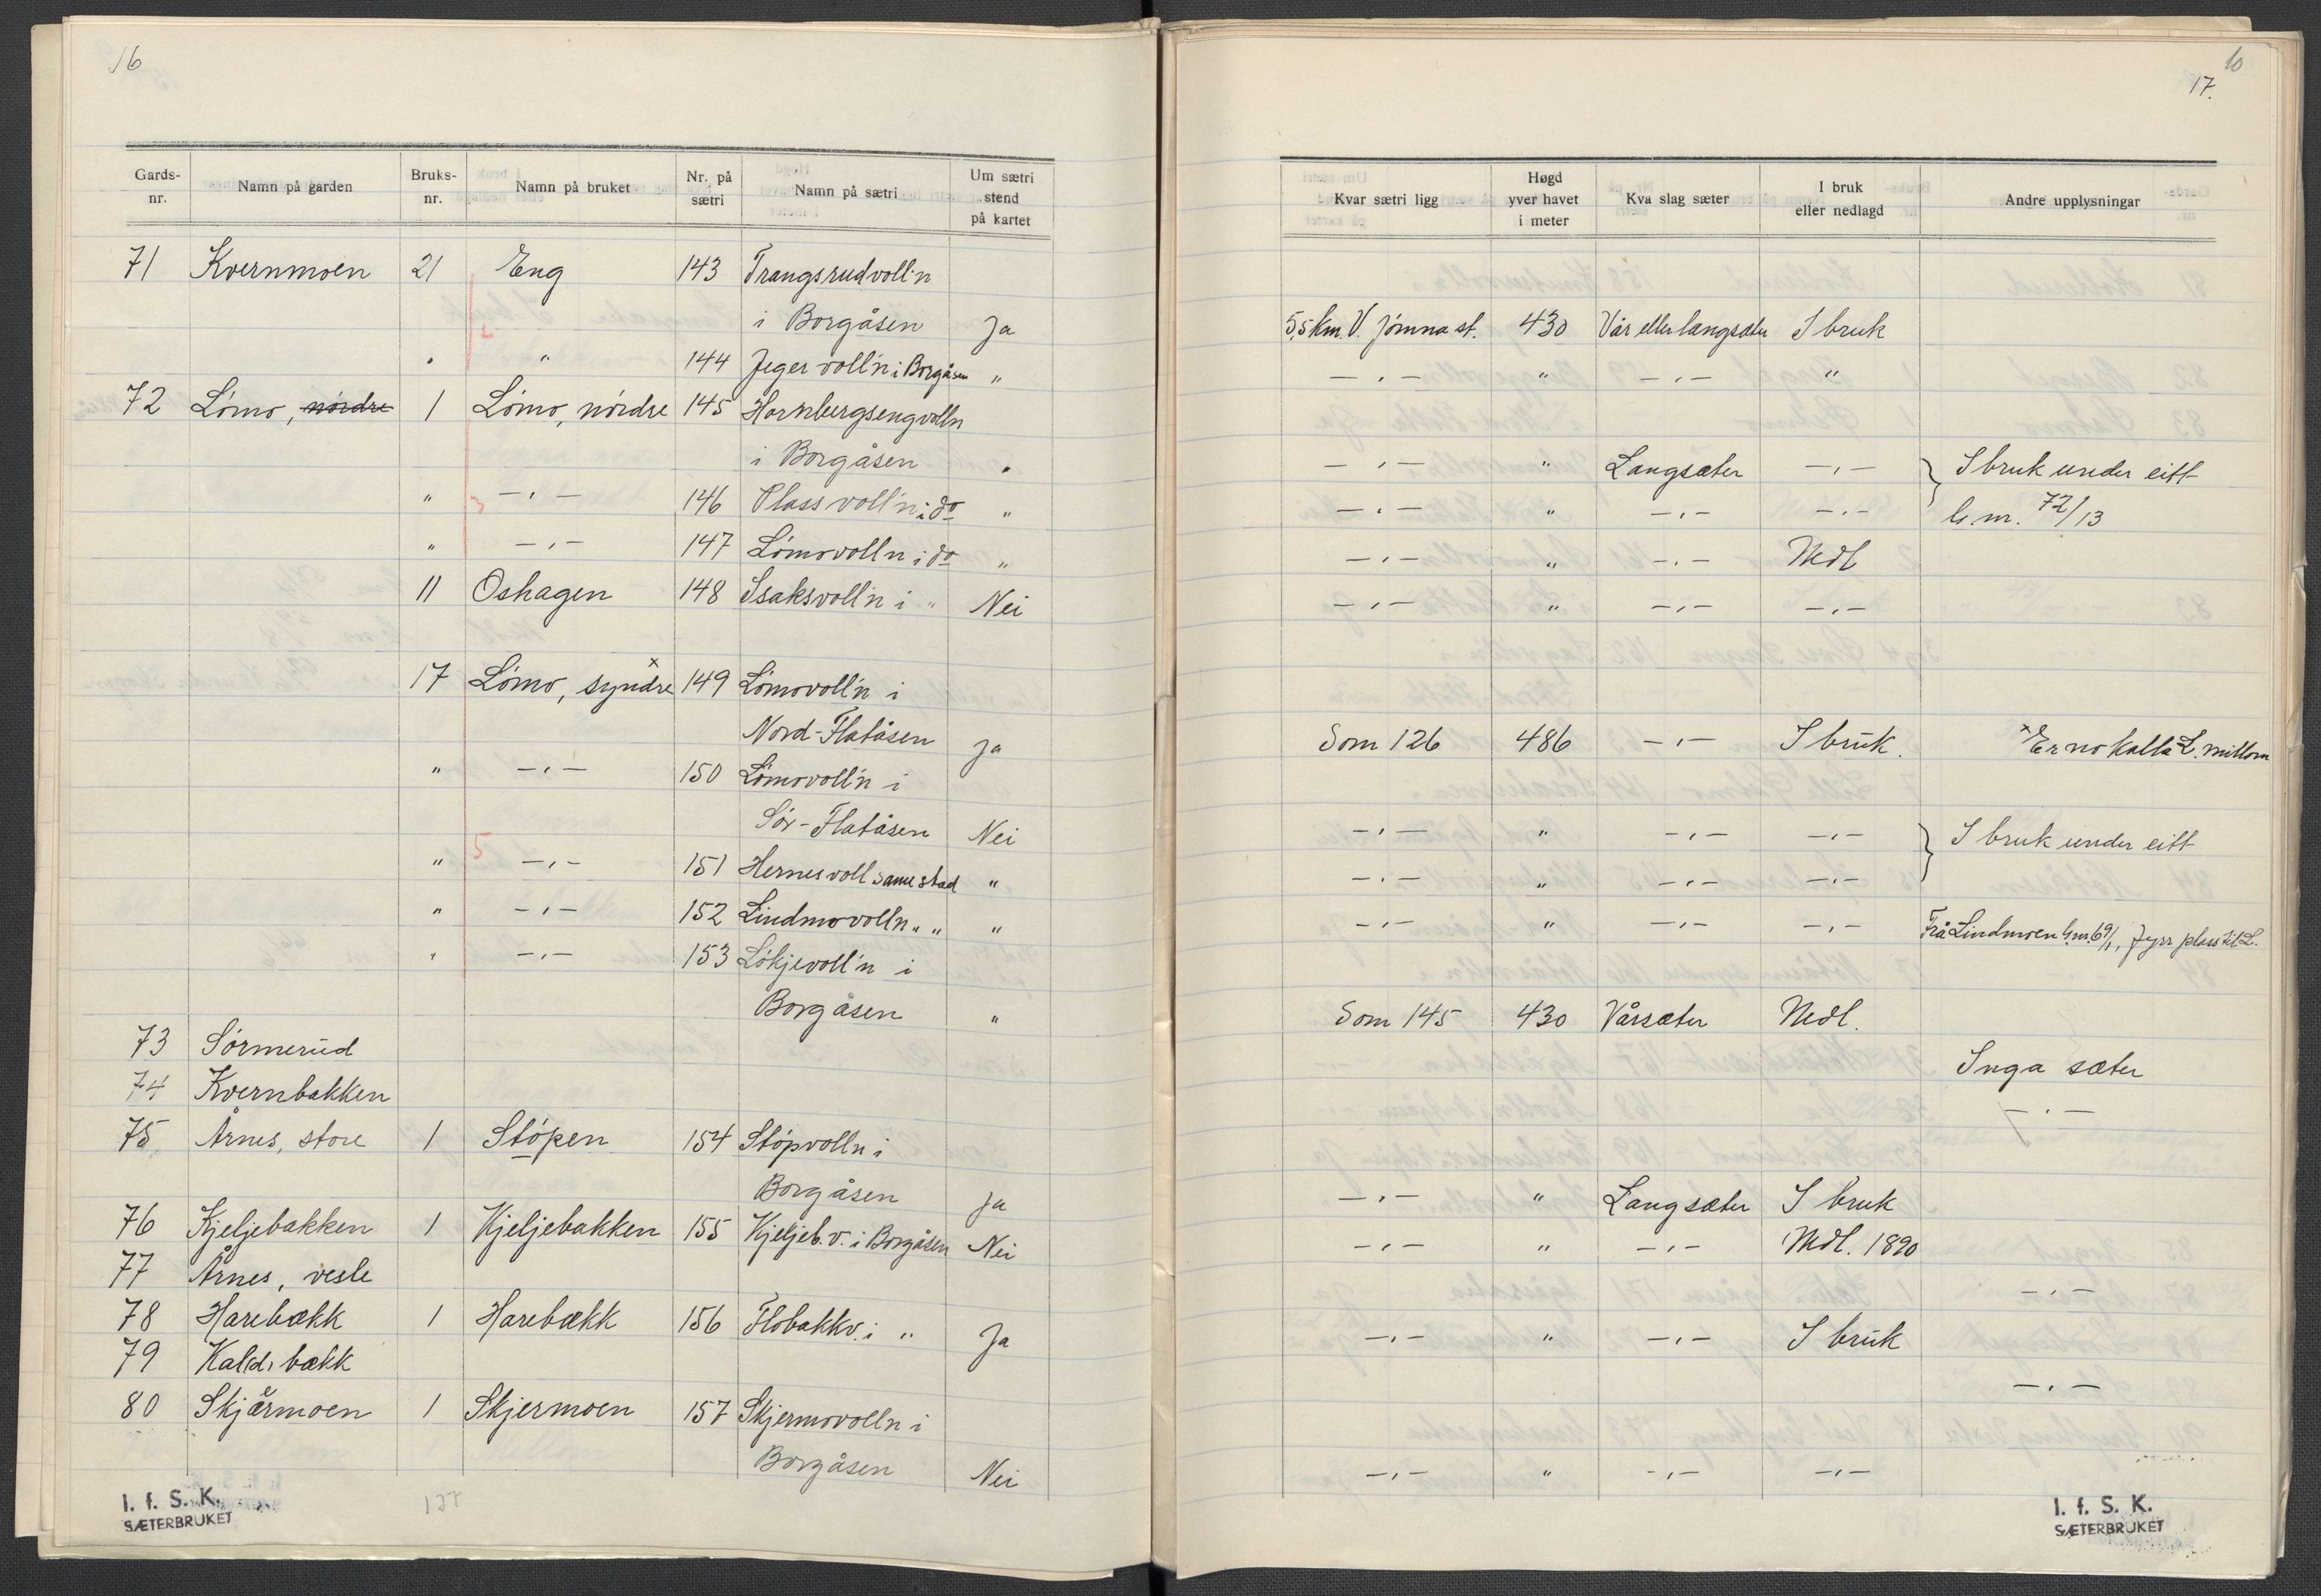 16
Gards-nr. Namn på garden Bruks-nr. Namn på bruket Nr. på sætri Namn på sætri Um sætri stend på kartet
71 Kvernmoen 21 Eng 143 Trangsrudvoll'n
i Borgåsen Ja
" " 144 Jegervoll'n i Borgåsen "
72 Lömo, nördre 1 Lömo, nördre 145 Hornbergsengvolln
i Borgåsen "
" 3 —,,— 146 Plassvoll'n i do "
" —,,— 147 Lömovoll'n i do "
11 Oshagen 148 Isaksvoll'n i " Nei
17 Lömo, syndre x 149 Lömovoll'n i
Nord-Flatåsen Ja
" —,,— 150 Lömovoll'n i
Sör-Flatåsen Nei
" 5 —,,— 151 Hernesvoll same stad "
" —,,— 152 Lindmovolln " " "
" —,,— 153 Lökjevoll'n i
Borgåsen "
73 Sörmerud
74 Kvernbakken
75 Årnes, store 1 Stöpen 154 Stöpvolln i
Borgåsen Ja
76 Kjeljebakken 1 Kjeljebakken 155 Kjeljeb.v. i Borgåsen Nei
77 Årnes, vesle
78 Harebækk 1 Harebækk 156 Flobakkv. i " Ja
79 Kald, bækk
80 Skjærmoen 1 Skjermoen 157 Skjermovolln i
Borgåsen Nei
I. f. S. K.
SÆTERBRUKET
137
10
17.
Kvar sætri ligg Høgd yver havet i meter Kva slag sæter I bruk eller nedlagd Andre upplysningar
5,5 km. V. Jömna st. 430 Vår eller langsæter I bruk
—,,— " —,,— "
—,,— " Langsæter —,,— } I bruk under eitt
—,,— " —,,— —,,— } b.nr. 72/13
—,,— " —,,— Nedl
—,,— " —,,— —,,—
Som 126 486 —,,— I bruk. x Er no kalla L. millom
—,,— " —,,— —,,— } I bruk under eitt
—,,— " —,,— —,,— }
—,,— " —,,— —,,— Frå Lindmoen G.nr. 69/1, fyrr plass til L.
Som 145 430 Vårsæter Nedl.
Inga sæter
—,,—
—,,— " Langsæter I bruk
—,,— " —,,— Nedl. 1890
—,,—
—,,— " —,,— I bruk
—,,—
—,,— " —,,— —,,—
I. f. S. K.
SÆTERBRUKET